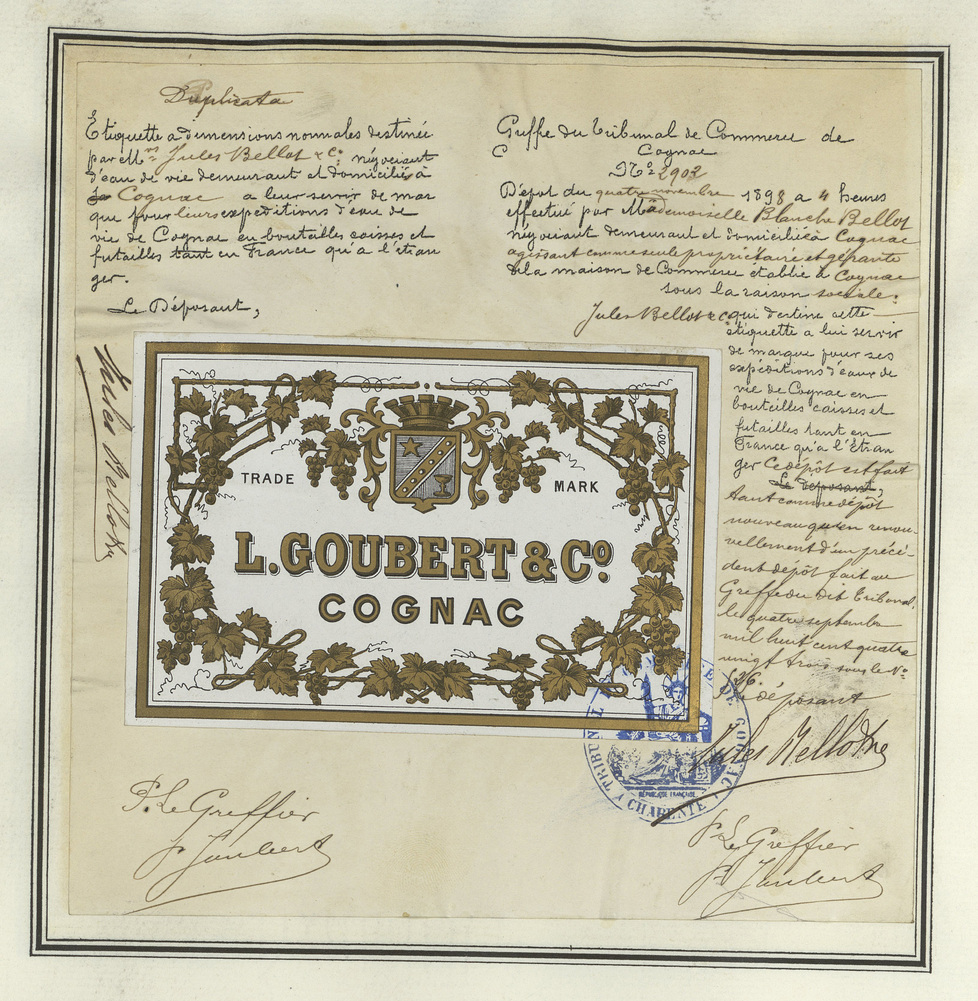 Duplicata
Etiquette a dimensions normales destinée
par M.rs Jules Bellot & Co; négociant
d'eau de vie demeurant et domiciliés à
Cognac a leur servir de mar
que pour leurs expéditions d'eau de
vie de Cognac en bouteilles caisses et
futailles tant en France qu'a l'étran
ger.
Le Déposant,
Jules Bellot & Co
Greffe du Tribunal de Commerce de
C Cognac
No 2902
Dépot du quatre novembre 1898 a 4 heures
effectué par Mademoiselle Blanche Bellot
négociant demeurant et domicilié à Cognac
agissant comme seule propriétaire et gérante
de la maison de Commerce etablie à Cognac
sous la raison sociale:
Jules Bellot & C qui destine cette
étiquette a lui servir
de marque pour ses
expéditions d'eaux de
vie de Cognac en
bouteilles caisses et
futailles tant en
France qu'a l'Etran
ger Ce dépôt est fait
Le deposant,
tant comme dépôt
nouveau qu'en renou-
vellement d'un précé-
dent dépôt fait au
Greffe du dit tribunal,
le quatre septembre
mil huit cent quatre
vingt trois sous le No
36.
Le déposant
Jules Bellot & Co
TRADE MARK
L. GOUBERT & Co.
COGNAC
TRIBUNAL DE COMMERCE DE COGNAC
RÉPUBLIQUE FRANÇAISE
CHARENTE
P. Le Greffier
P. Joubert
P. Le Greffier
P. Joubert